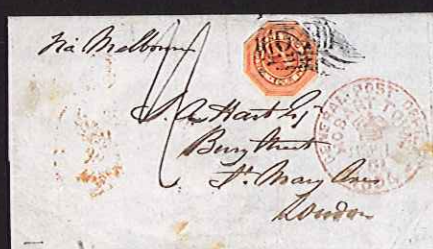 Via Melbourne
S. A. Hart Esq
Bury Street
St. Mary Axe
London
GENERAL POST OFFICE
HOBART TOWN